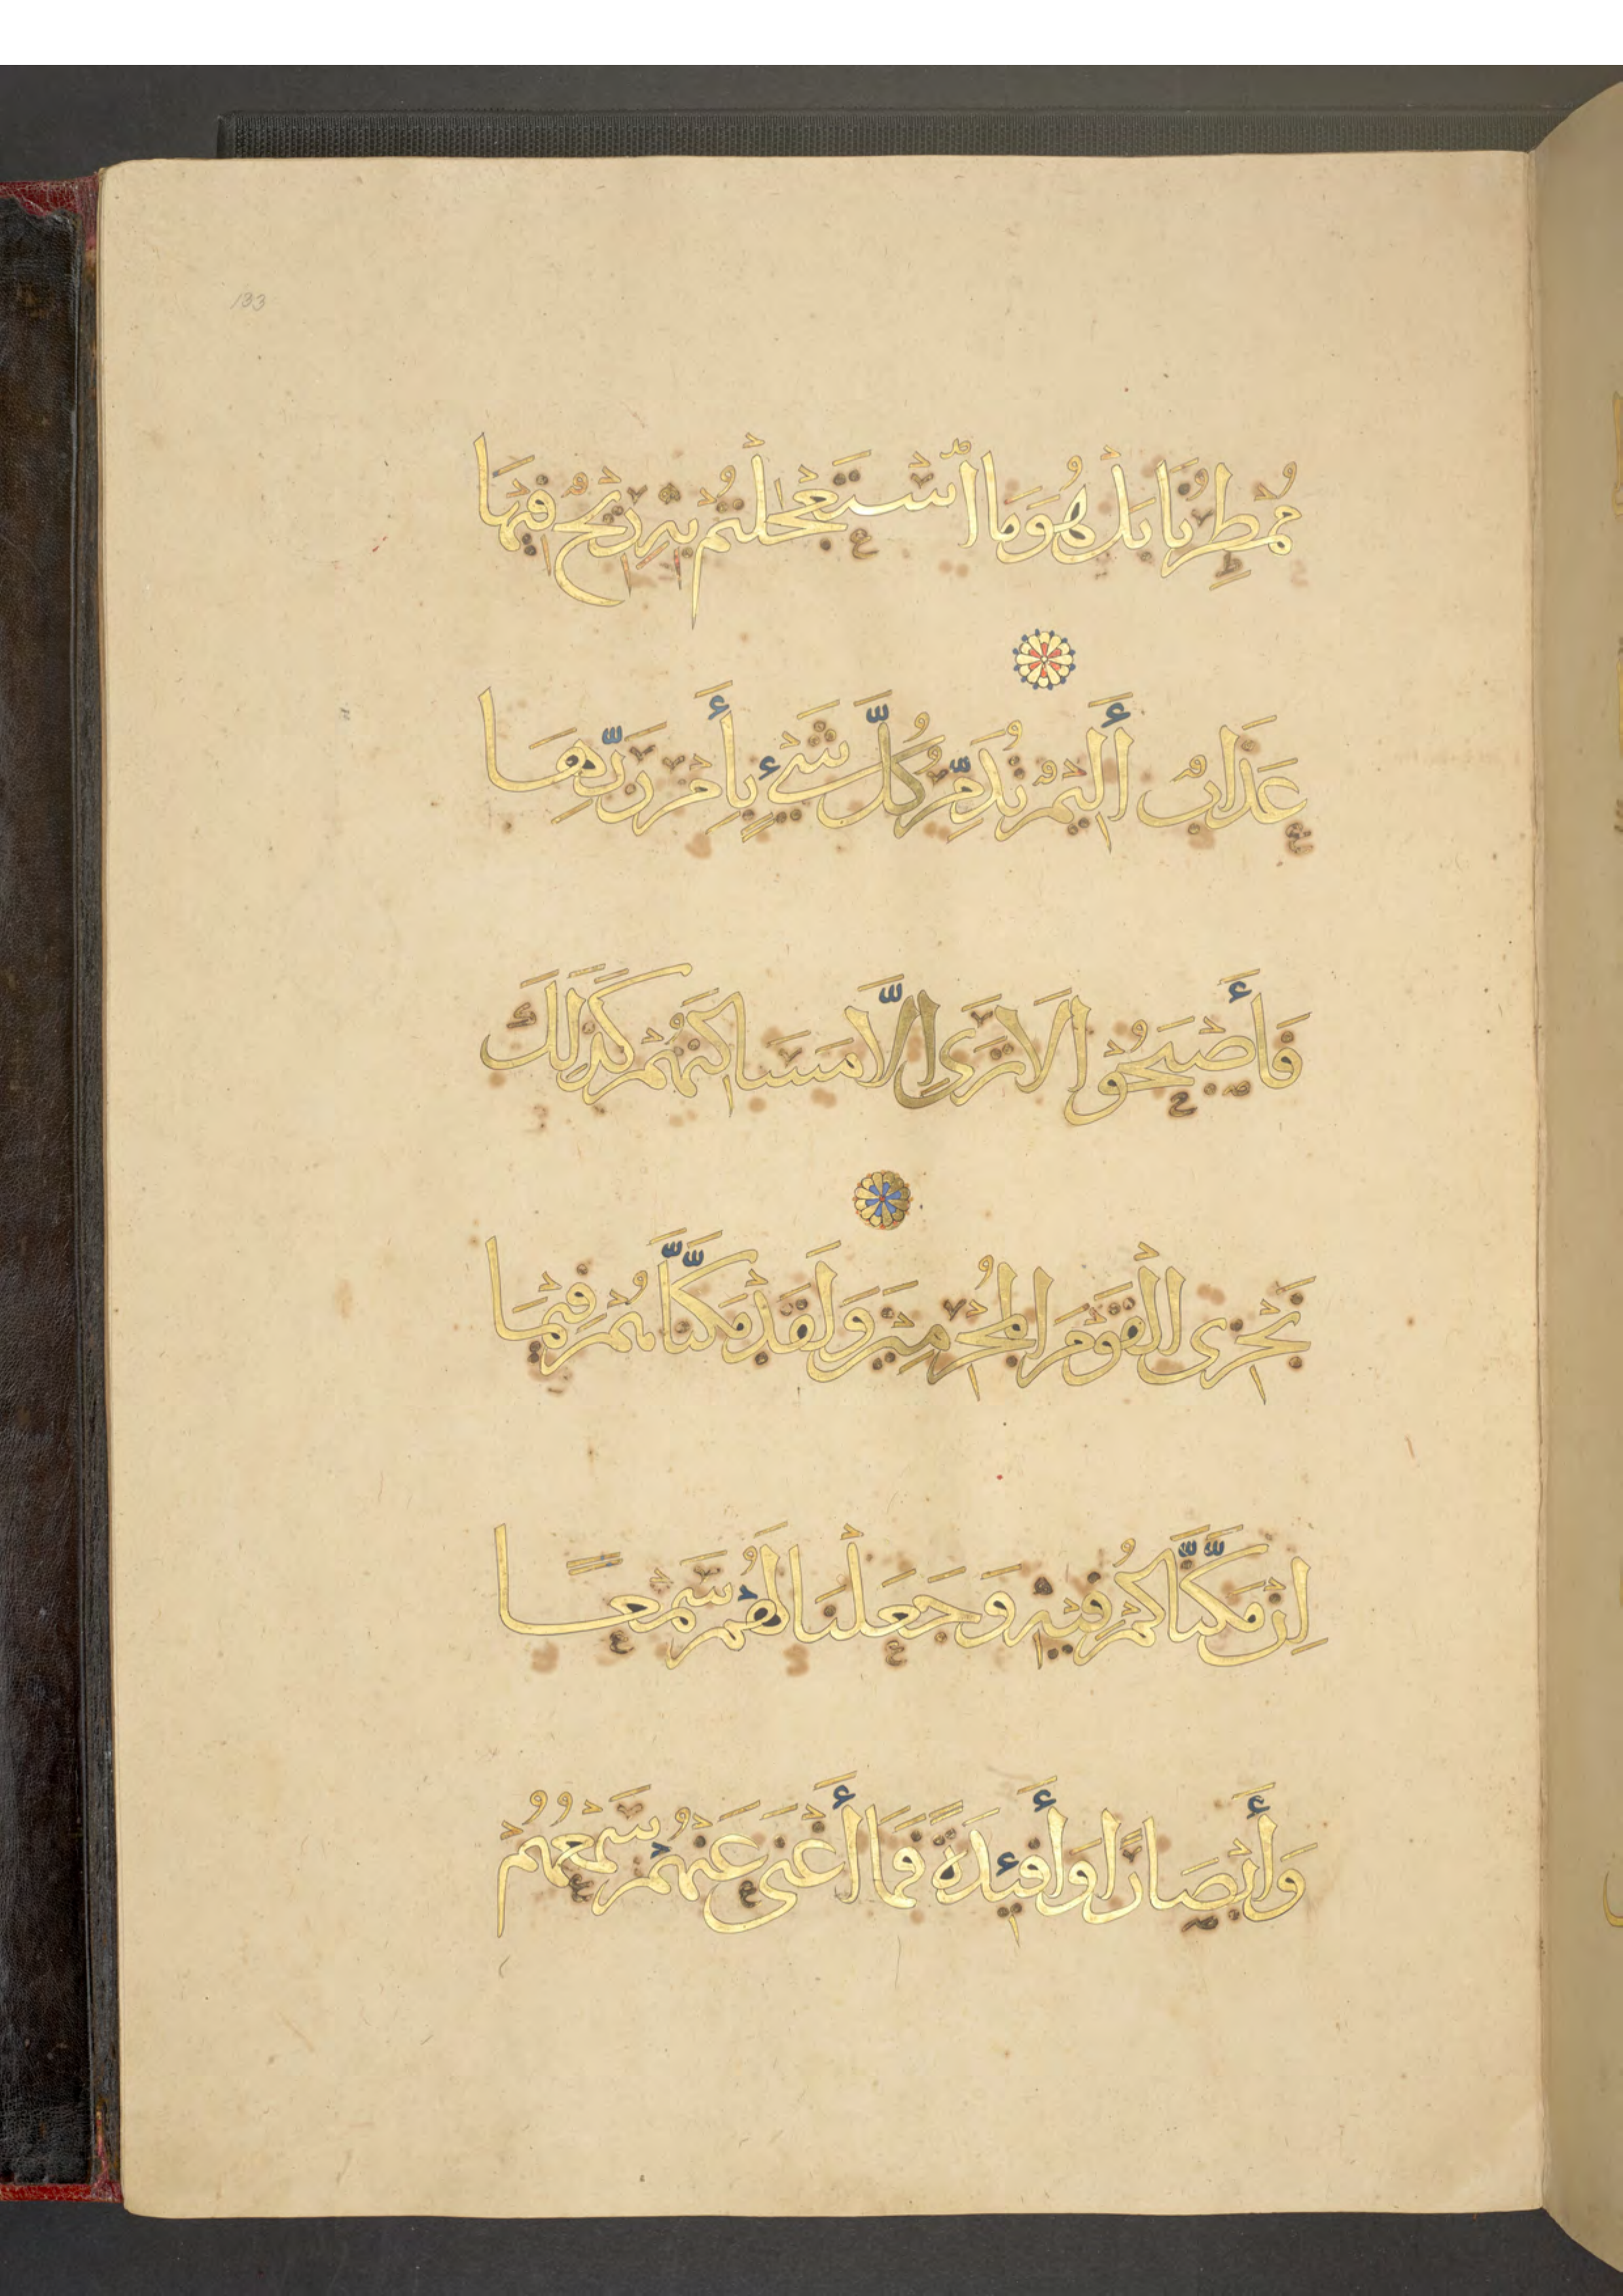 133
مُمْطِرُنَا بَلْ هُوَ مَا اسْتَعْجَلْتُمْ بِهِ رِيْحٌ فِيْهَا
عَذَابٌ أَلِيْمٌ تُدَمِّرُ كُلَّ شَيْءٍ بِأَمْرِ رَبِّهَا
فَأَصْبَحُوْا لَا تَرَى اِلَّا مَسَاكِنَهُمْ كَذَلِكَ
نَجْزِى الْقَوْمَ الْمُجْرِمِيْنَ وَلَقَدْ مَكَّنَّاهُمْ فِيْمَا
اِنْ مَكَّنَّاكُمْ فِيْهِ وَجَعَلْنَا لَهُمْ سَمْعًا
وَأَبْصَارًا وَأَفْئِدَةً فَمَا أَغْنَى عَنْهُمْ سَمْعُهُمْ